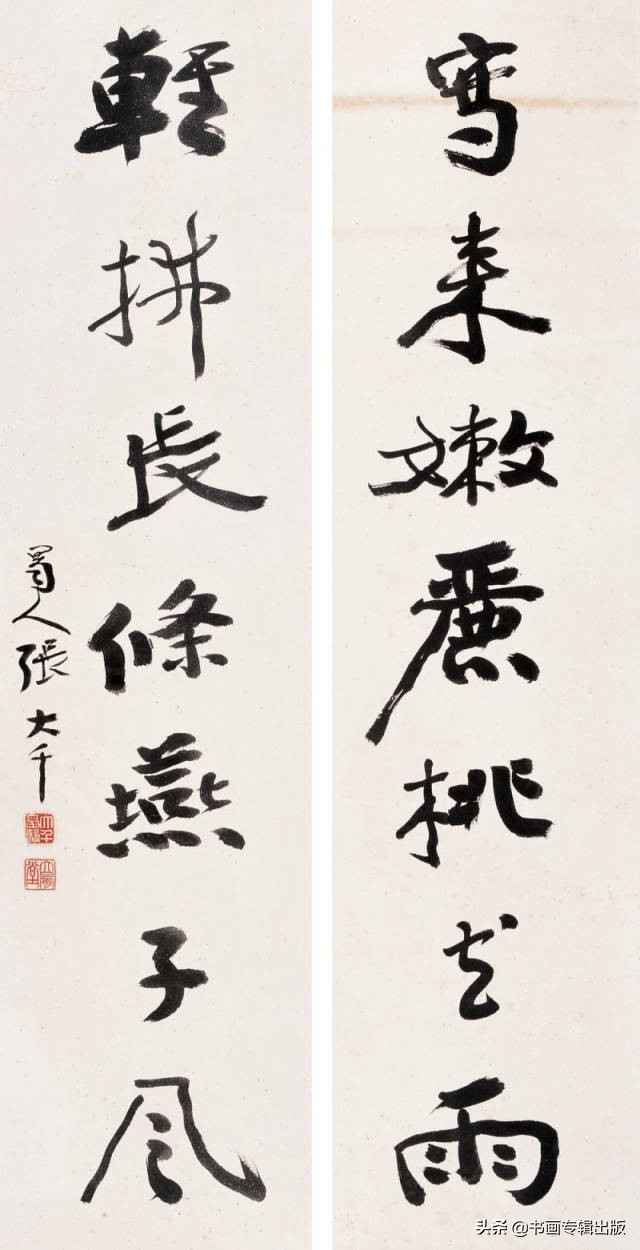 寫來嫩麗桃花雨
輕拂長條燕子風
蜀人張大千
大風堂
头条 @书画专辑出版